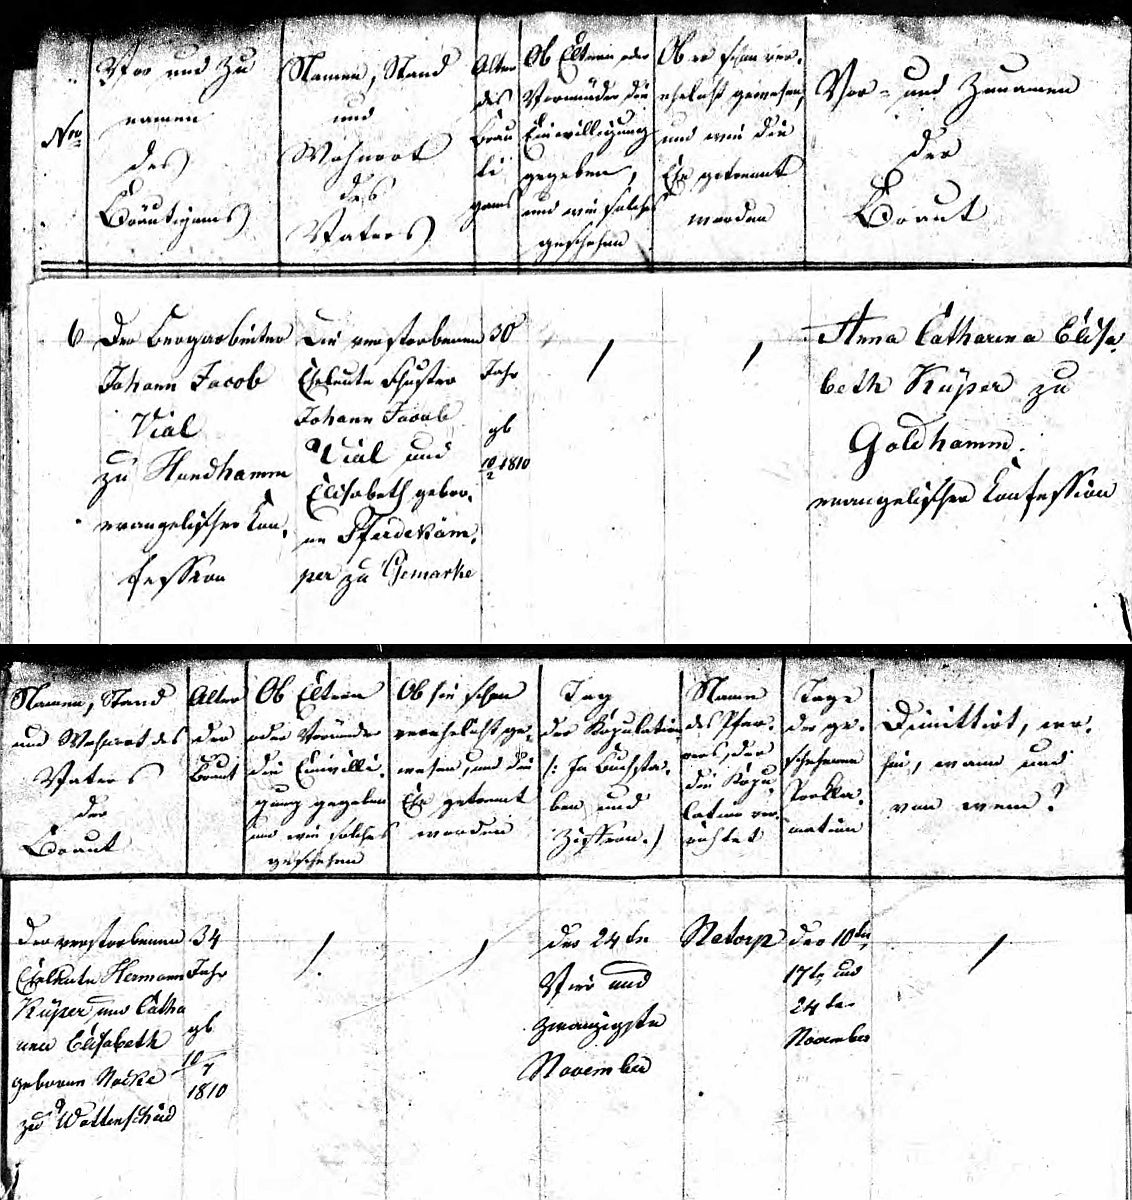 Nro
Vor und Zu
namen
des
Bräutigams
Namen, Stand
und
Wohnort
des
Vaters
Alter
des
Bräu
ti
gams
Ob Eltern oder
Vormünder die
Einwilligung
gegeben,
und wie solches
geschehen
Ob er schon ver-
ehelicht gewesen,
und wie die
Ehe getrennt
worden
Vor- und Zunamen
der
Braut
6
Der Bergarbeiter
Johann Jacob
Vial
zu Hundhamm
evangelischer Kon-
fession
Die verstorbenen
Eheleute Schuster
Johann Jacob
Vial und
Elisabeth gebor-
ne Pferdekäm-
per zu Gemarke
30
Jahr
gb
10/2 1810
/
/
Anna Catharina Elisa-
beth Küper zu
Goldhamm.
evangelischer Konfession
Namen, Stand
und Wohnort des
Vaters
der
Braut
Alter
der
Braut
Ob Eltern
oder Vormünder
die Einwilli-
gung gegeben
und wie solches
geschehen
Ob sie schon
verehelicht ge-
wesen, und die
Ehe getrennt
worden
Tag
der Kopulation
/: In Buchsta-
ben und
Ziffern. /
Name
des Pfar-
rers, der
die Kopu-
lation ver-
richtet
Tage
der ge-
schehenen
Prokla-
mation
Dimittirt, wo-
hin, wann und
von wem?
Der verstorbenen
Eheleute Hermann
Küper und Catha
rina Elisabeth
geborene Nocke
zu Wattenscheid
34
Jahr
gb
10/7
1810
/
/
der 24te
Vier und
zwanzigste
November
Natorp
der 10te,
17te und
24te
November
/